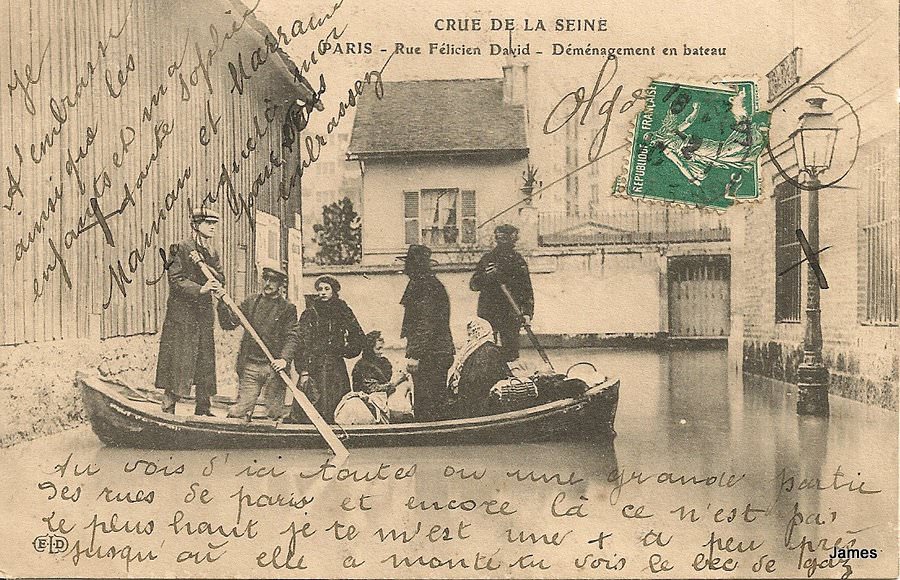 CRUE DE LA SEINE
PARIS - Rue Félicien David - Déménagement en bateau
Je
t'embrasse
ainsi que les
enfants et ma
tante Sophie
Maman et Marraine
pour moi
embrassez
Olga
REPUBLIQUE FRANÇAISE
Tu vois d'ici toutes ou une grande partie
des rues de paris et encore là ce n'est pas
le plus haut je te m'est une + a peu près
jusqu'où elle a monté tu vois le bec de gaz
ELD
James